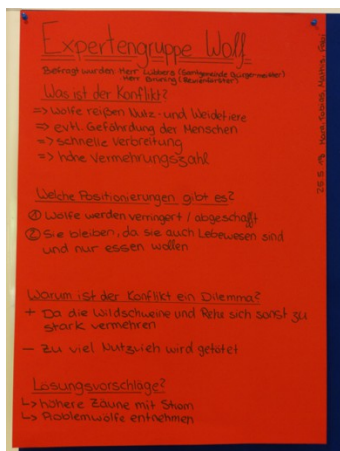 Expertengruppe Wolf
Befragt wurden: Herr Lübbers (Samtgemeinde Bürgermeister)
Herr Brüning (Revierförster)
Was ist der Konflikt?
=> Wölfe reißen Nutz- und Weidetiere
=> evtl. Gefährdung der Menschen
=> schnelle Verbreitung
=> hohe Vermehrungszahl
Welche Positionierungen gibt es?
① Wölfe werden verringert / abgeschafft
② Sie bleiben, da sie auch Lebewesen sind
und nur essen wollen
Warum ist der Konflikt ein Dilemma?
+ Da die Wildschweine und Rehe sich sonst zu
stark vermehren
- Zu viel Nutzvieh wird getötet
Lösungsvorschläge?
↳ höhere Zäune mit Strom
↳ Problemwölfe entnehmen